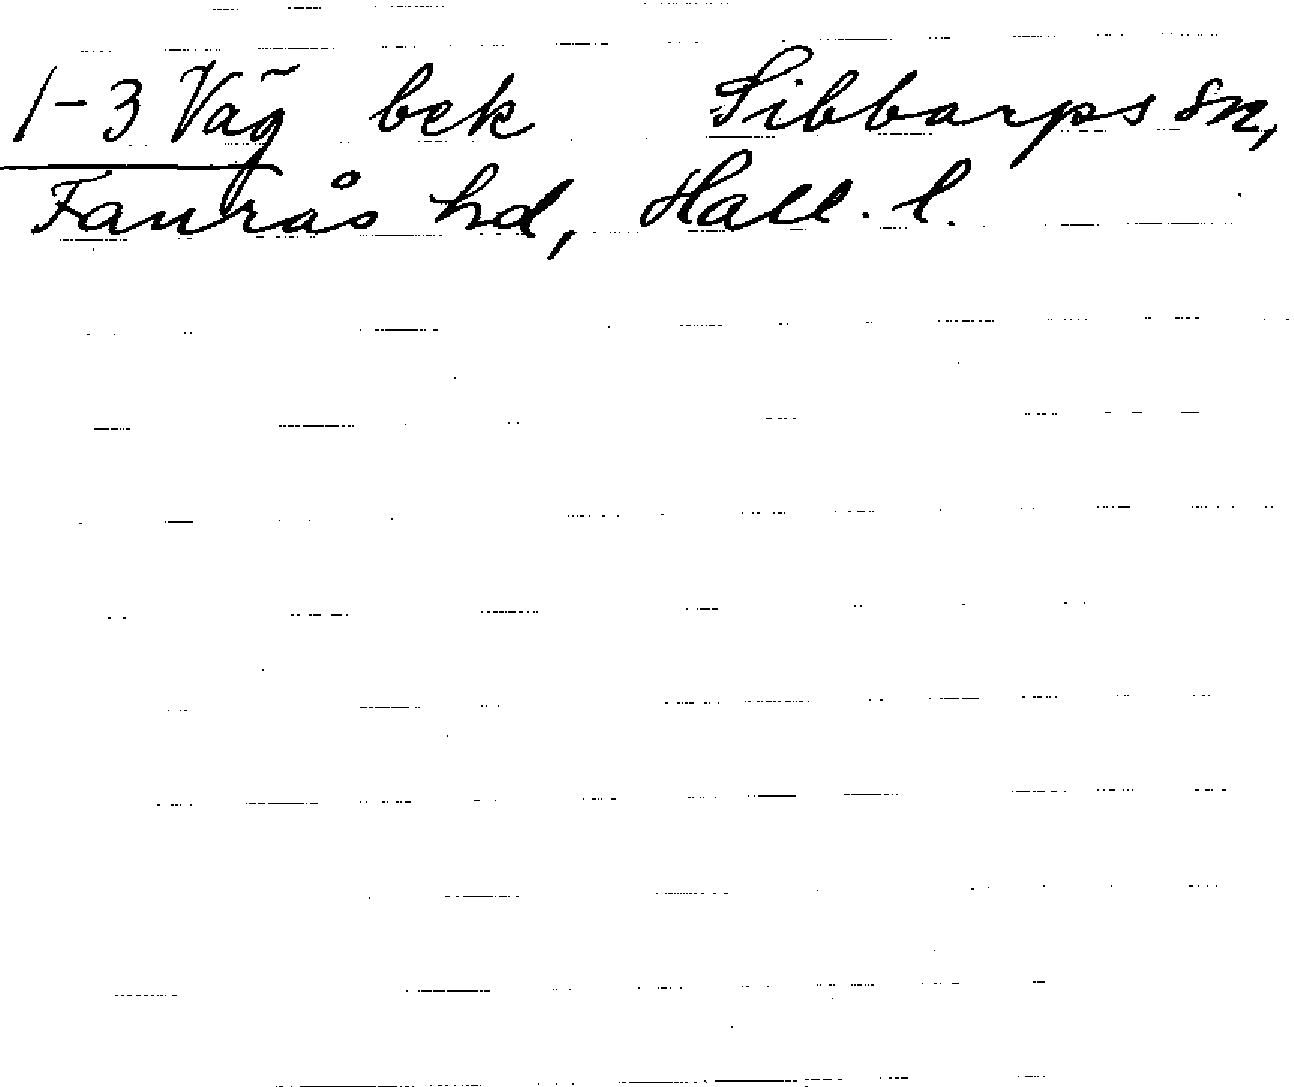 1-3 Väg bek Sibbarps sn,
Faurås hd, Hall. l.